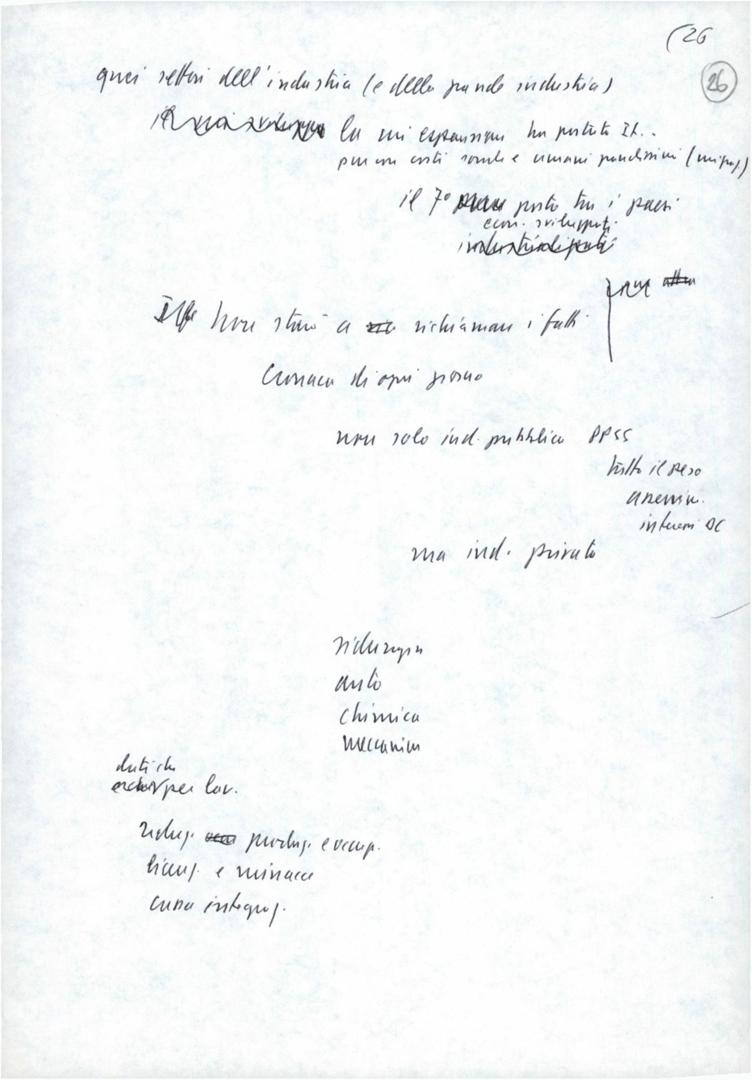 (26
26
quei settori dell'industria (e della grande industria)
la cui espansione ha portato It..
pur con costi sociali e umani grandissimi (migraz.)
il 7° posto tra i paesi
econ. sviluppati
non starò a richiamare i fatti
Cronaca di ogni giorno
non solo ind. pubblica PPSS
tutto il peso
interessi DC
ma ind. privata
siderurgia
auto
chimica
meccanica
per lav.
riduz. produz. e occup.
licenz. e minacce
cassa integraz.